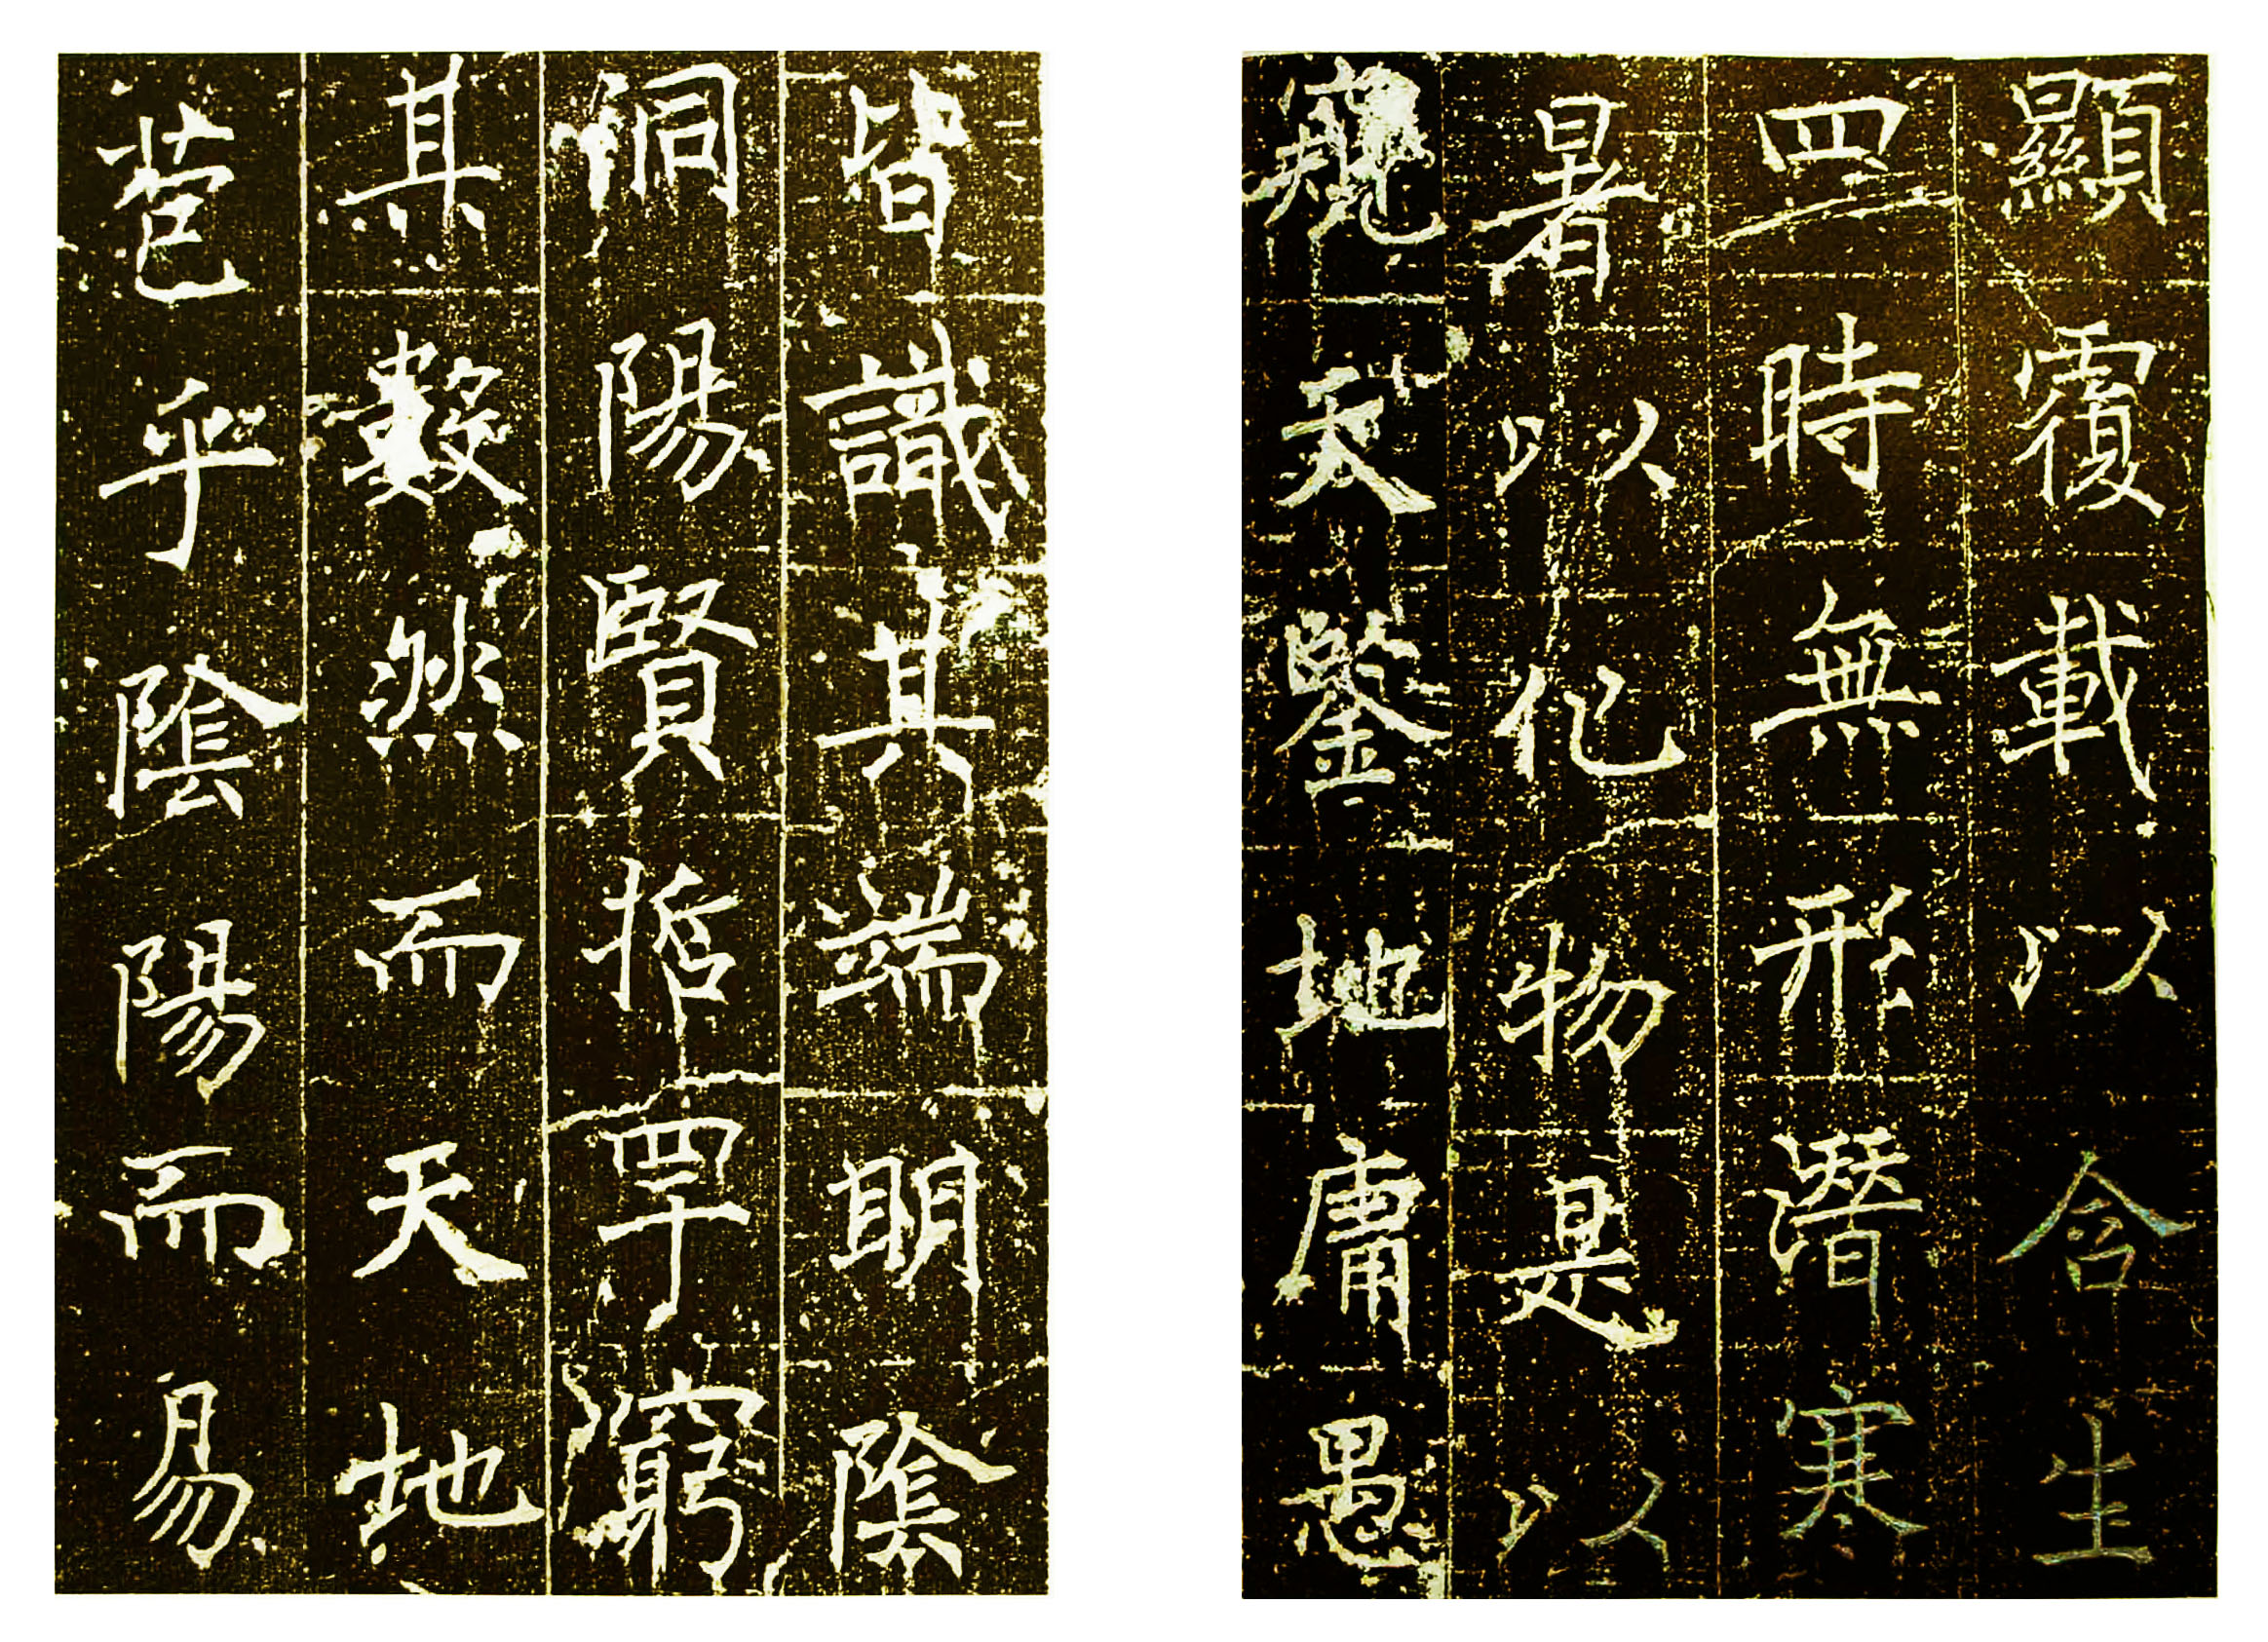 顯覆載以含生
四時無形潛寒
暑以化物是以
窺天鑒地庸愚
皆識其端明陰
洞陽賢哲罕窮
其數然而天地
苞乎陰陽而易